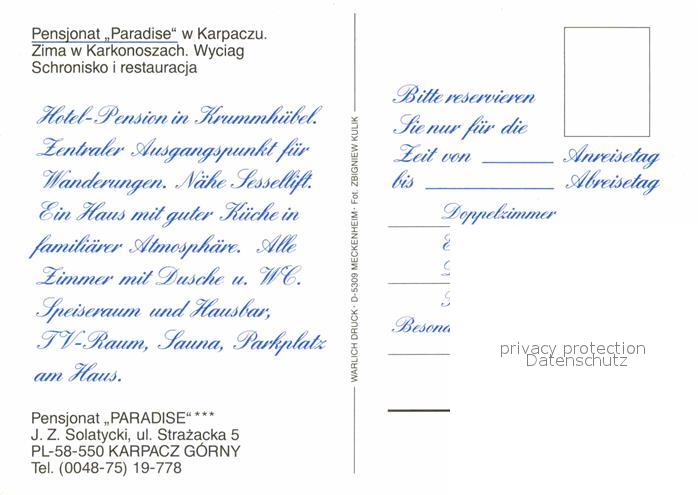 Pensjonat „Paradise“ w Karpaczu.
Zima w Karkonoszach. Wyciag
Schronisko i restauracja
Hotel-Pension in Krummhübel.
Zentraler Ausgangspunkt für
Wanderungen. Nähe Sessellift.
Ein Haus mit guter Küche in
familiärer Atmosphäre. Alle
Zimmer mit Dusche u. WC.
Speiseraum und Hausbar,
TV-Raum, Sauna, Parkplatz
am Haus.
Pensjonat „PARADISE“ ***
J. Z. Solatycki, ul. Strażacka 5
PL-58-550 KARPACZ GÓRNY
Tel. (0048-75) 19-778
WARLICH DRUCK · D-5309 MECKENHEIM · Fot. ZBIGNIEW KULIK
Bitte reservieren
Sie nur für die
Zeit von ________ Anreisetag
bis ________ Abreisetag
Doppelzimmer
privacy protection
Datenschutz